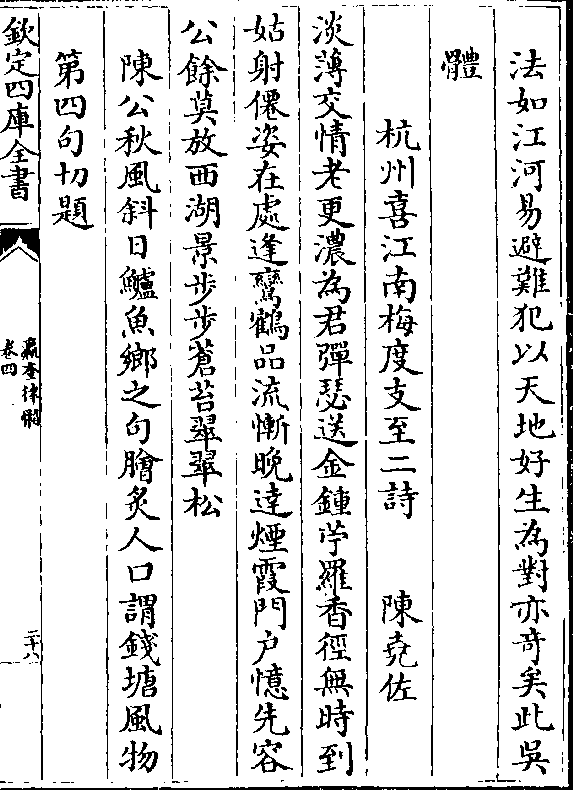 法如江河易避難犯以天地好生為對亦奇矣此吳
體
杭州喜江南梅度支至二詩 陳堯佐
淡薄交情老更濃為君彈瑟送金鍾苧羅香徑無時到
姑射僊姿在處逢鸞鶴品流慚晚達煙霞門户憶先容
公餘莫放西湖景步步蒼苔翠翠松
陳公秋風斜日鱸魚鄉之句膾炙人口謂錢塘風物
第四句切題
欽定四庫全書
瀛奎律髓
卷四
二十八